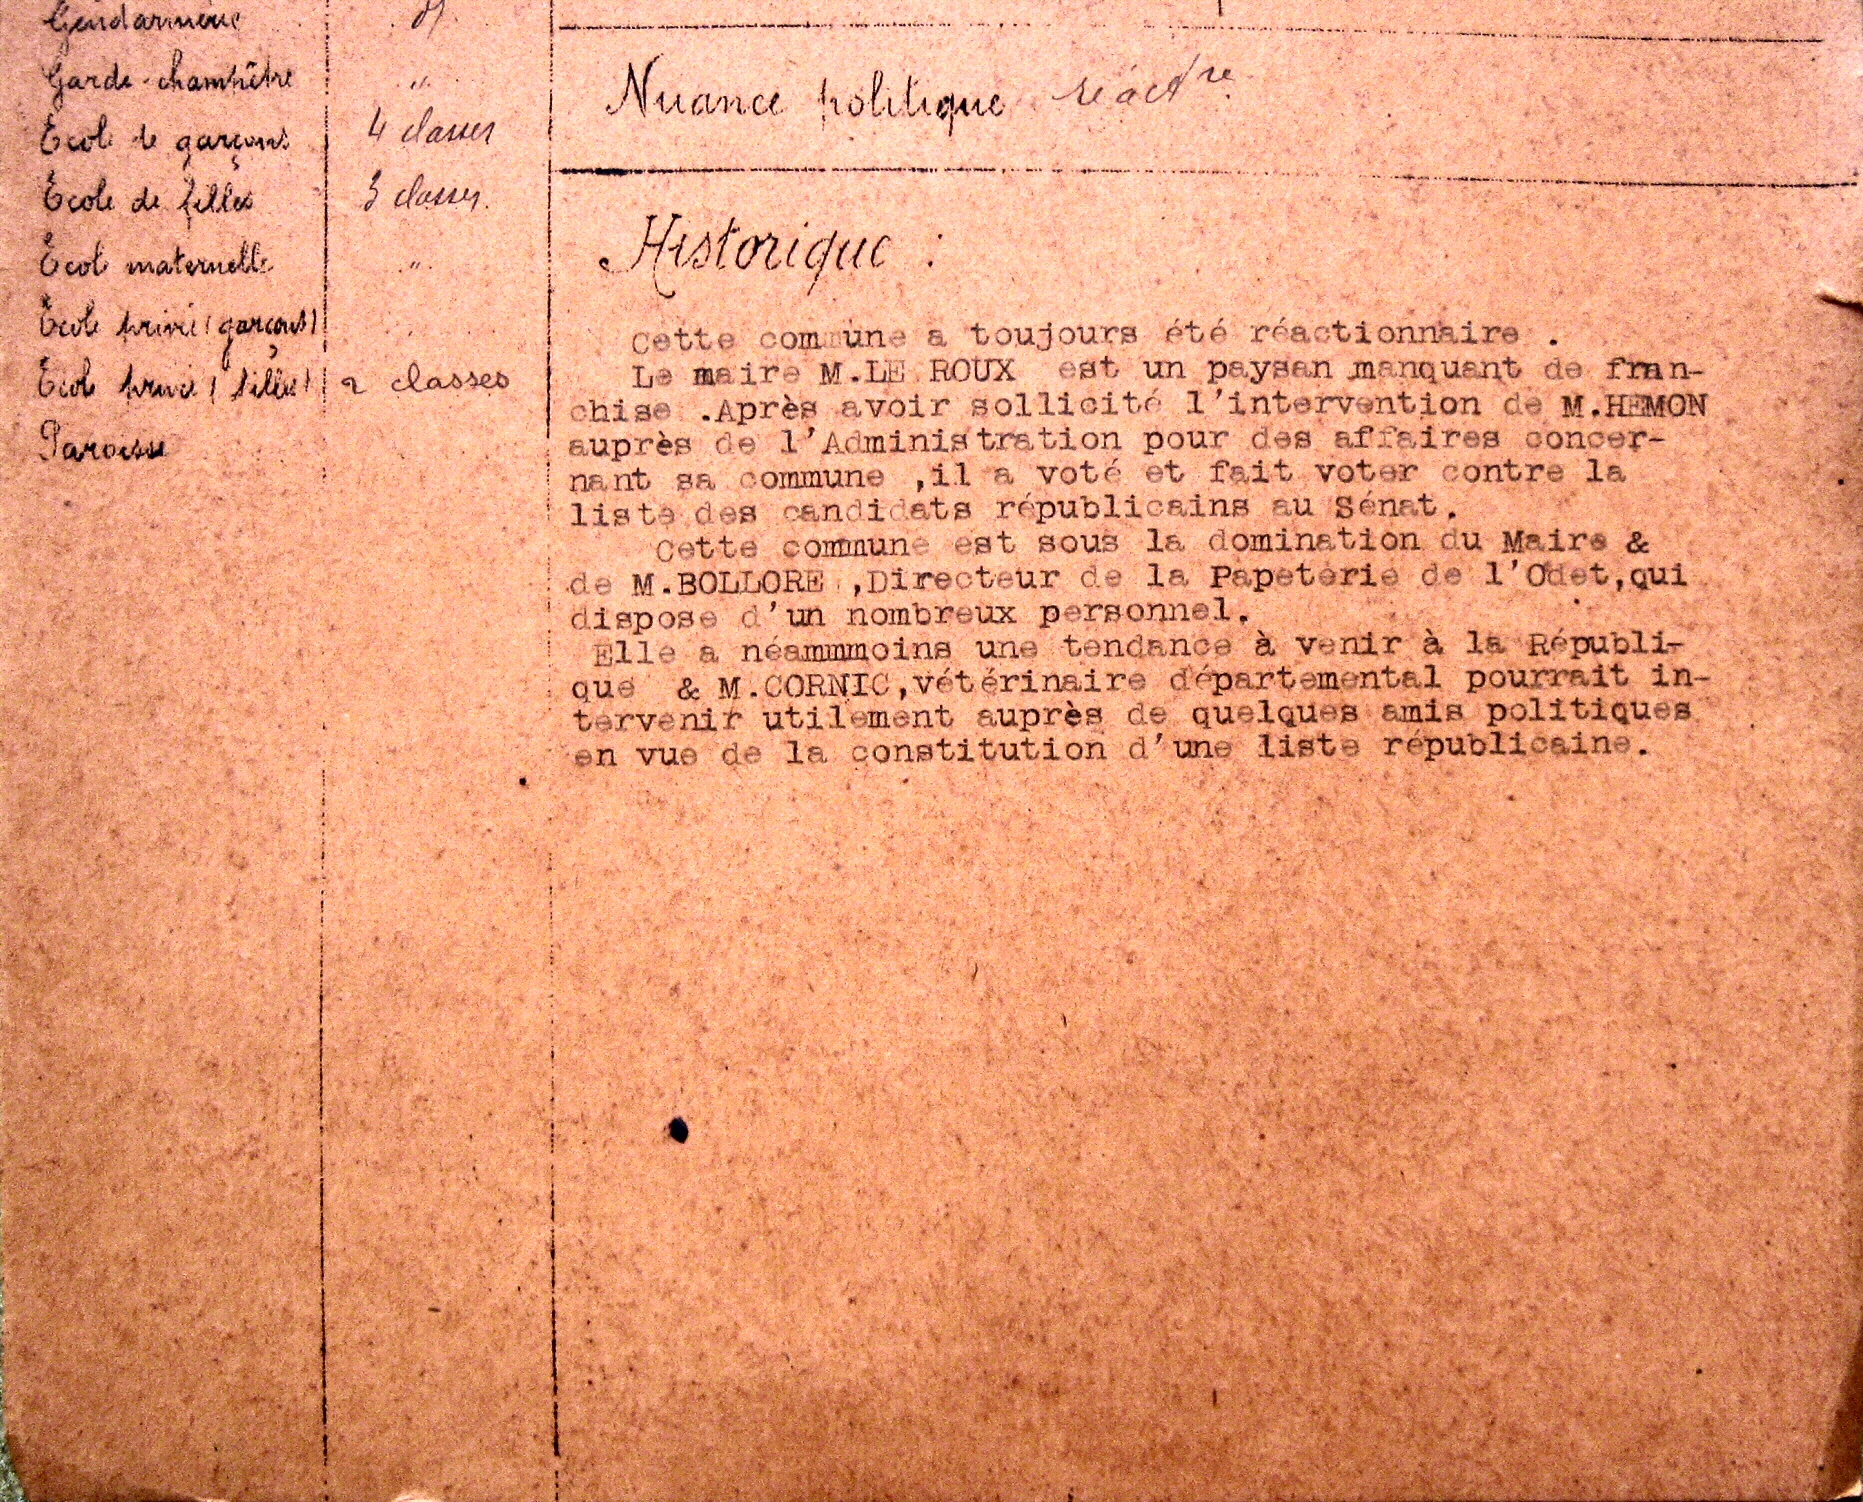 Gendarmerie
Garde-champêtre "
Ecole de garçons 4 classes
Ecole de filles 3 classes.
Ecole maternelle "
Ecole privée (garçons)
Ecole privée (filles) 2 classes
Paroisse
Nuance politique réactre
Historique :
Cette commune a toujours été réactionnaire .
Le maire M.LE ROUX est un paysan manquant de fran-
chise .Après avoir sollicité l'intervention de M.HEMON
auprès de l'Administration pour des affaires concer-
nant sa commune ,il a voté et fait voter contre la
liste des candidats républicains au Sénat.
Cette commune est sous la domination du Maire &
de M.BOLLORE ,Directeur de la Papeterie de l'Odet,qui
dispose d'un nombreux personnel.
Elle a néammmoins une tendance à venir à la Républi-
que & M.CORNIC,vétérinaire départemental pourrait in-
tervenir utilement auprès de quelques amis politiques
en vue de la constitution d'une liste républicaine.